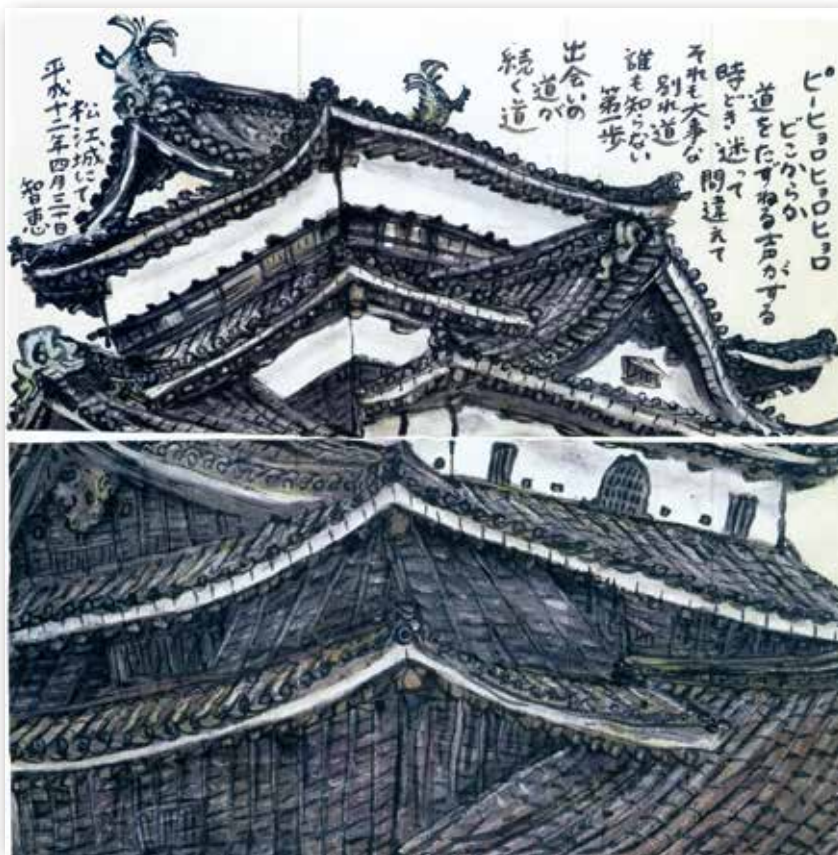 ピーヒョロヒョロヒョロ
どこからか
道をたずねる声がする
時どき迷って
間違えて
それも大事な
別れ道
誰も知らない
第一歩
出会いの
道が
続く道
松江城にて
平成十二年四月三十日
智恵